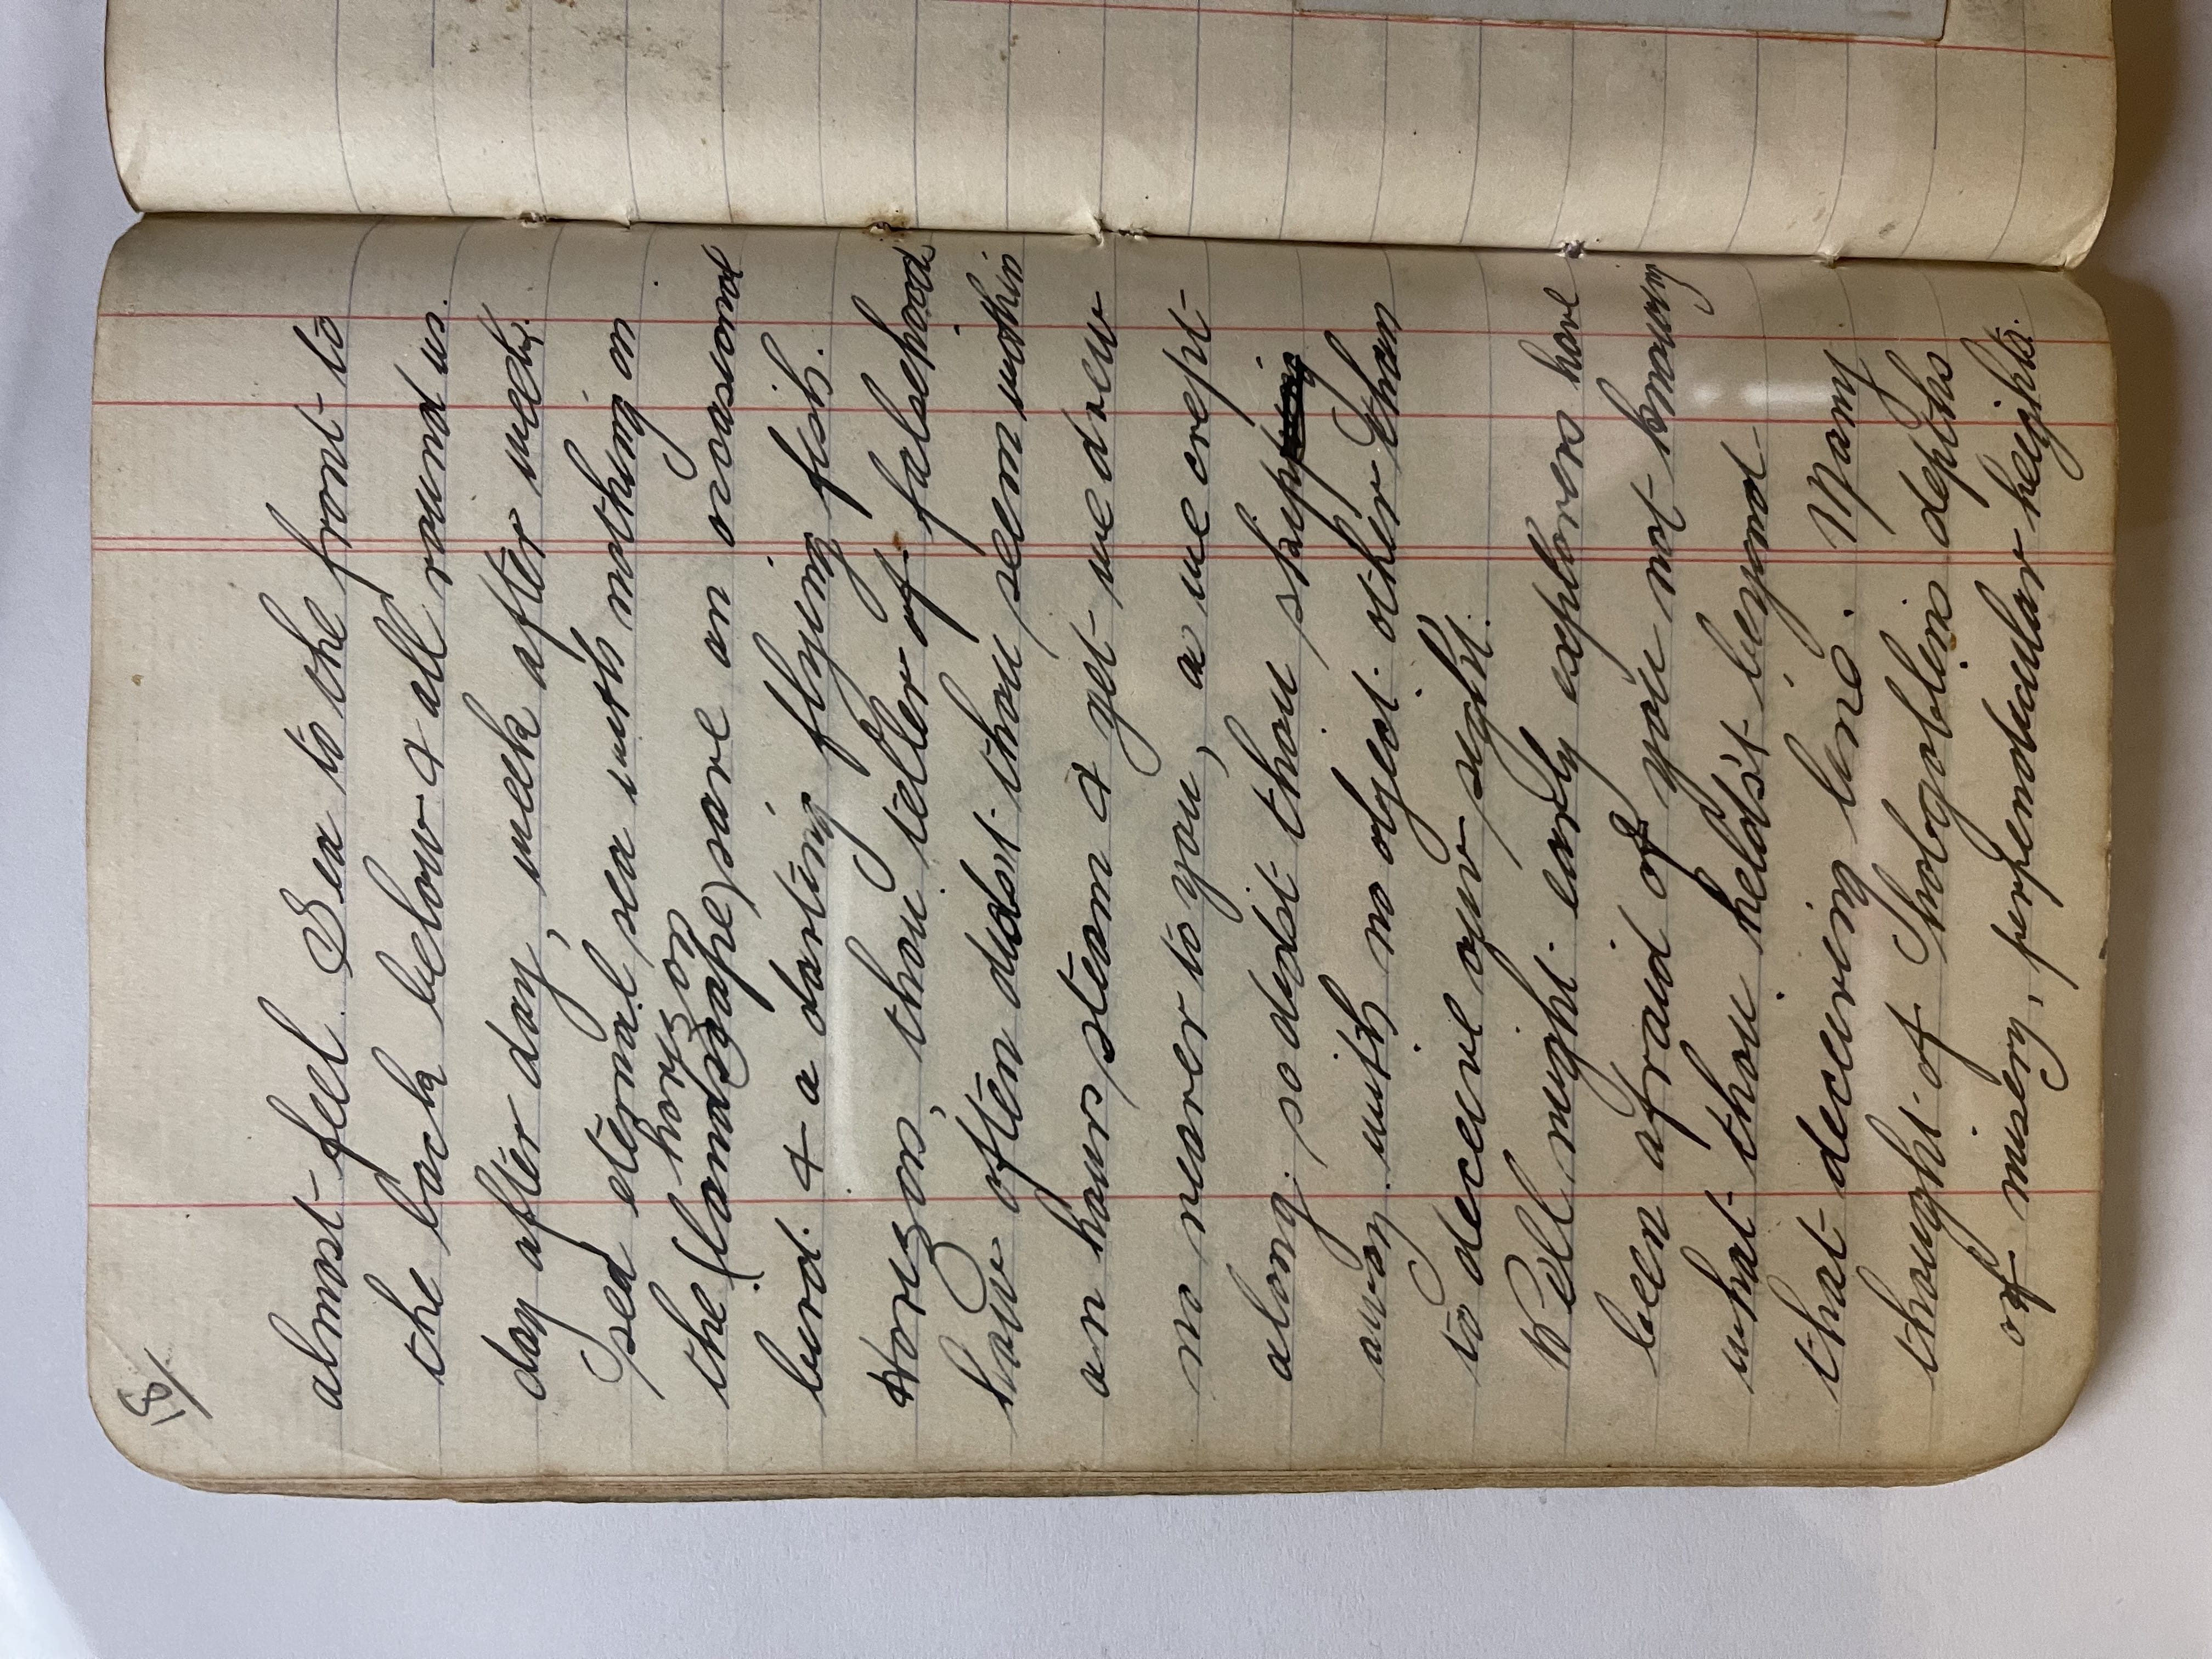 18/
almost feel. Sea to the front to
the back below & all round us.
day after day, week after week.
sea eternal sea with nothing on
horizon
the (landscape) save an occasional
bird. & a darting flying fish.
Horizon, thou teller of falsehoods
how often didst thou seem within
an hours steam & yet we drew
no nearer to you, as we crept
along. so didst thou slip
away with no object other than
to deceive our sight.
Well might early explorers have
been afraid of you not knowing
what thou held'st beyond
that deceiving line. Many
thought of Thobgoblins depths
of misery, perpendicular heights.